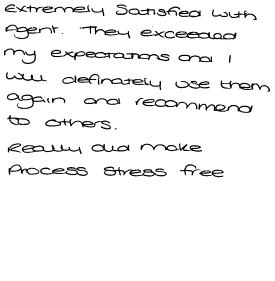 Extremely Satisfied with
Agent. They exceeded
my expectations and I
will definately use them
again and recommend
to others.
Really did make
Process stress free